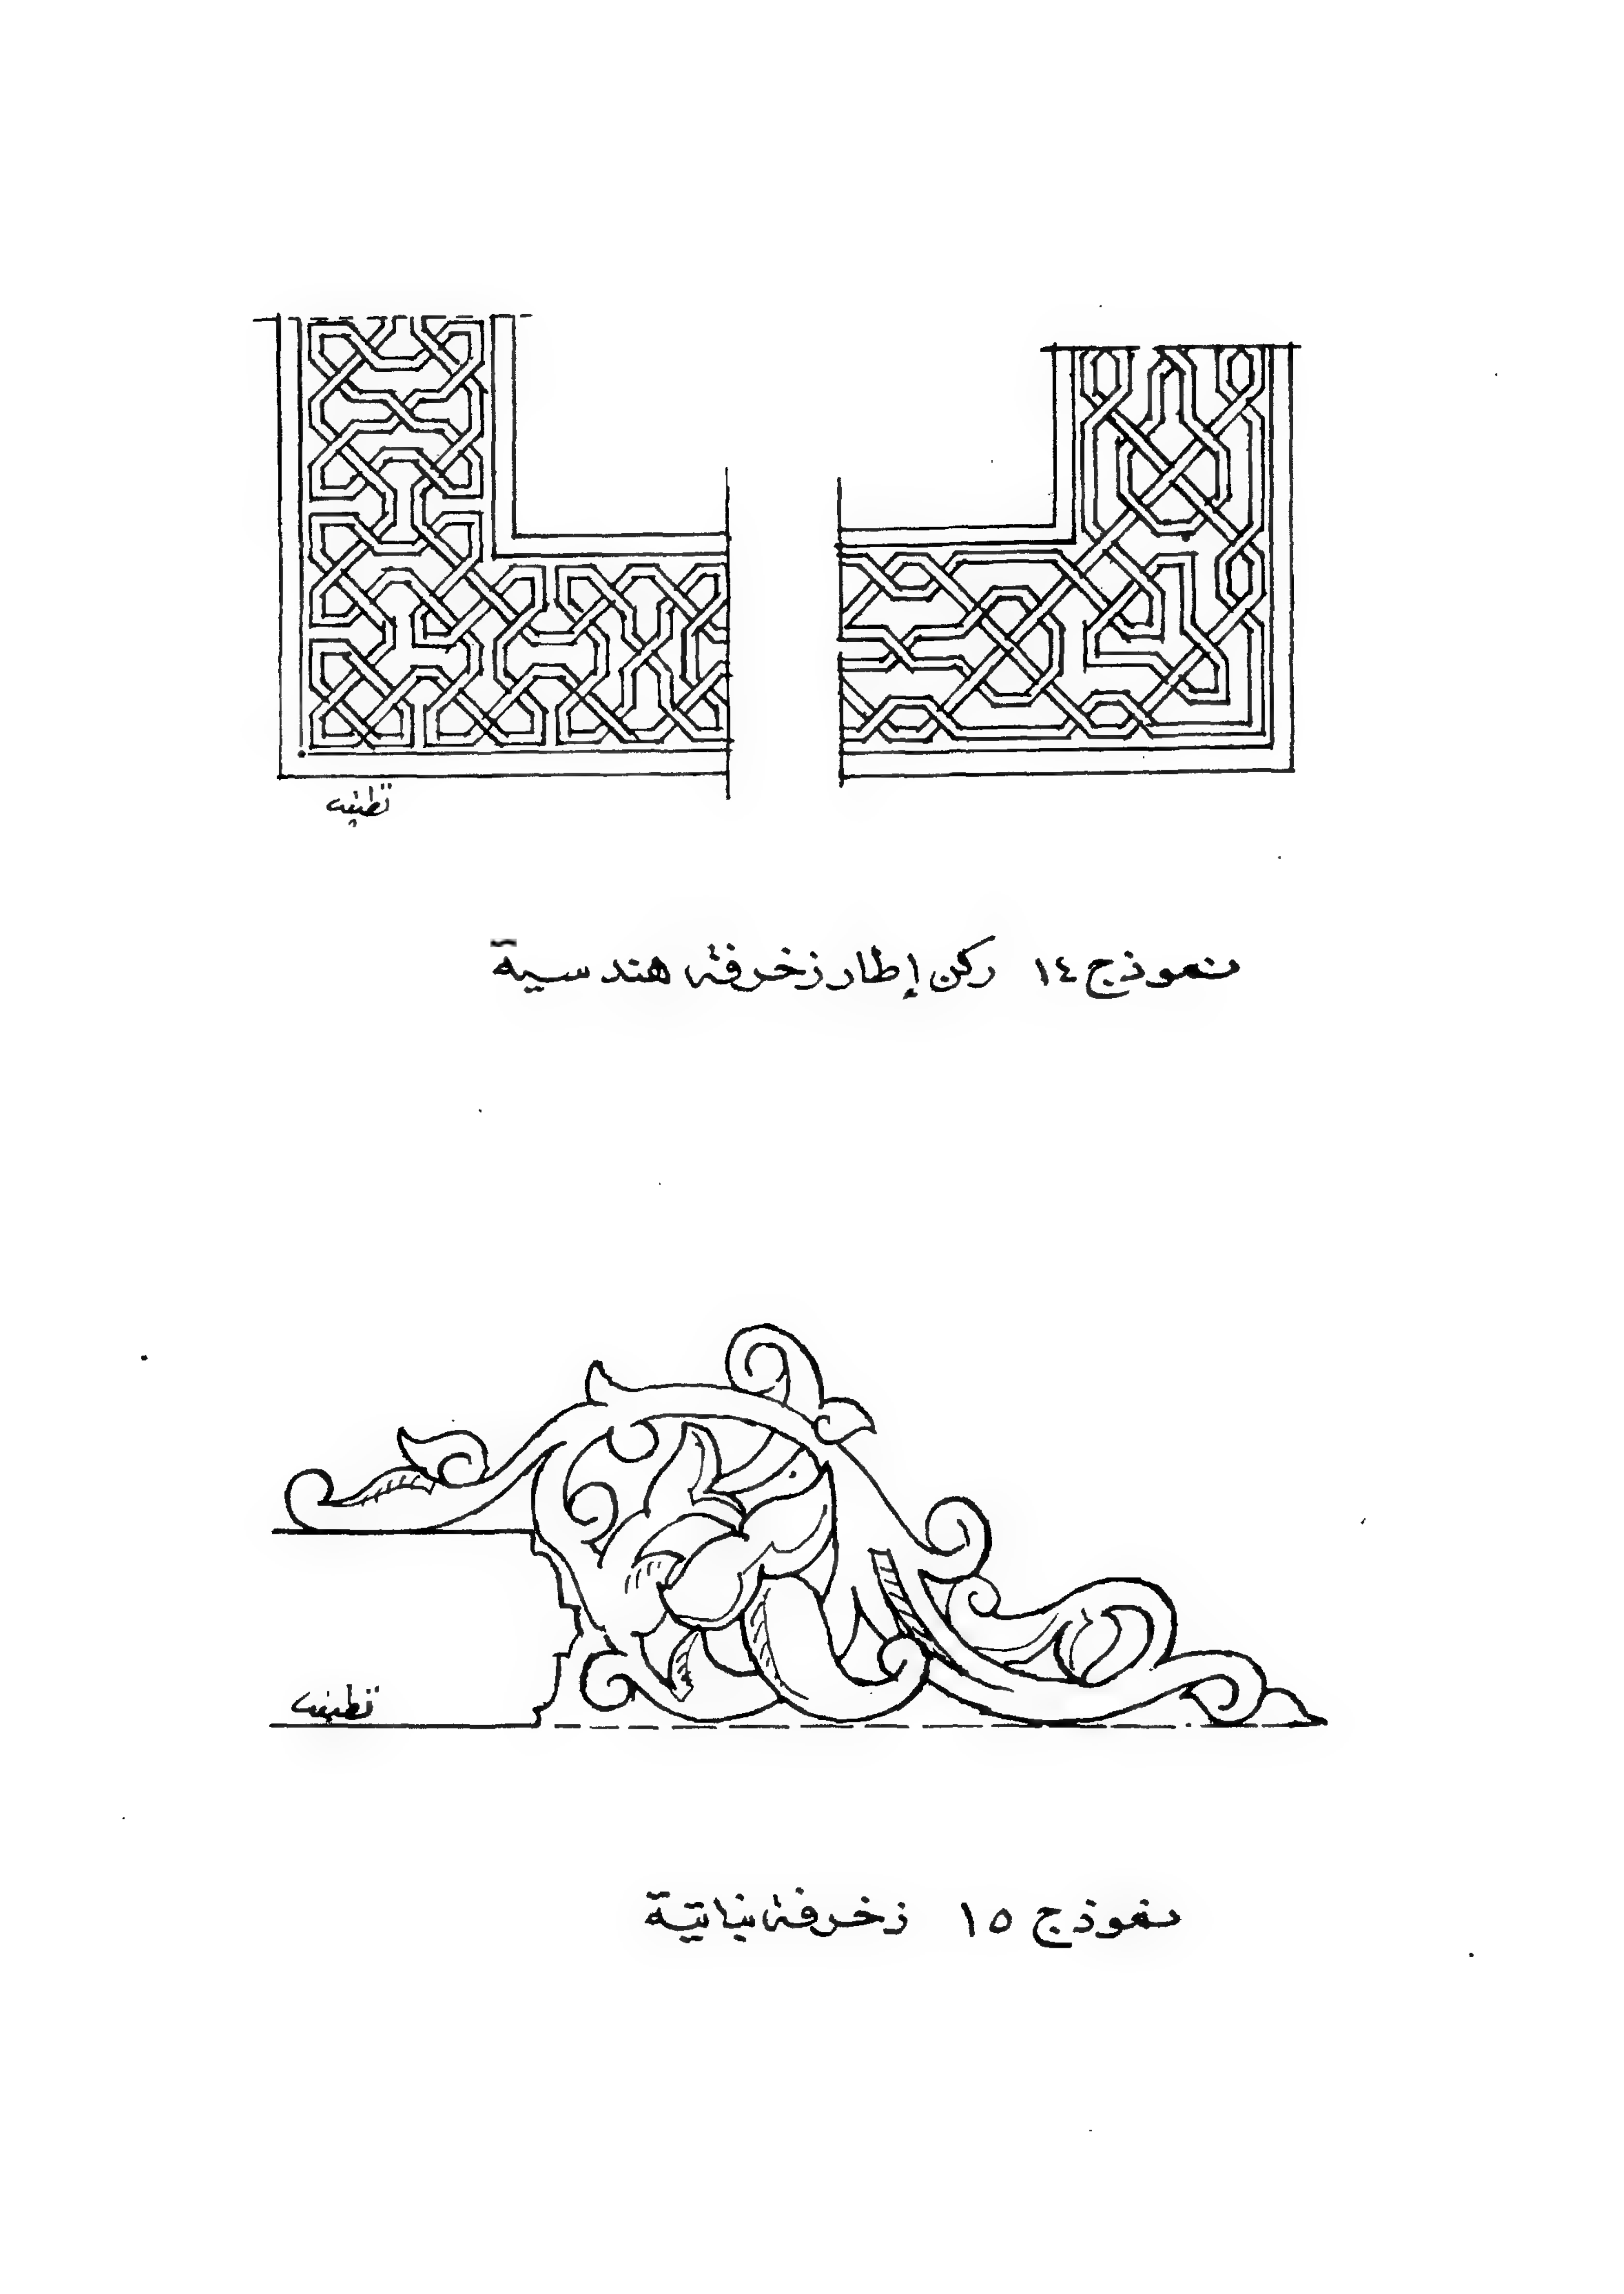 نموذج ١٤ ركن إطار زخرفة هندسية
نموذج ١٥ زخرفة نباتية